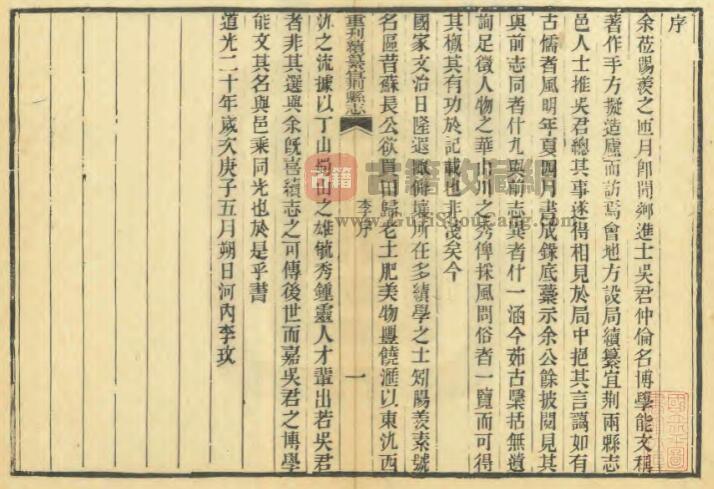 序
余莅陽羨之匝月即聞鄉進士吳君仲倫名博學能文稱
著作手方擬造廬而訪焉會地方設局續纂宜荆兩縣志
邑人士推吳君總其事遂得相見於局中挹其言藹如有
古儒者風明年夏四月書成錄底藁示余公餘披閱見其
與前志同者什九與前志異者什一涵今茹古檃括無遺
詢足徵人物之華山川之秀俾採風問俗者一覽而可得
其概其有功於記載也非淺矣今
國家文治日隆遐陬僻壤所在多績學之士矧陽羨素號
名區昔蘇長公欲買田歸老土肥美物豐饒滙以東氿西
重刊續纂宜荆縣志
李序
一
氿之流據以丁山蜀山之雄毓秀鍾靈人才輩出若吳君
者非其選與余旣喜續志之可傳後世而嘉吳君之博學
能文其名與邑乘同光也於是乎書
道光二十年歲次庚子五月朔日河內李玫
古籍收藏網
www.GuJiShouCang.com